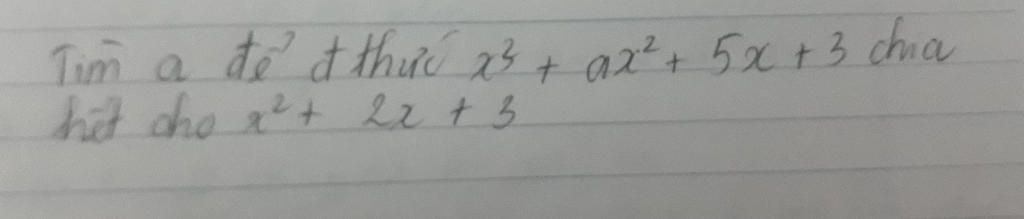 Tìm a để đ thức x³ + ax² + 5x + 3 chia
hết cho x² + 2x + 3